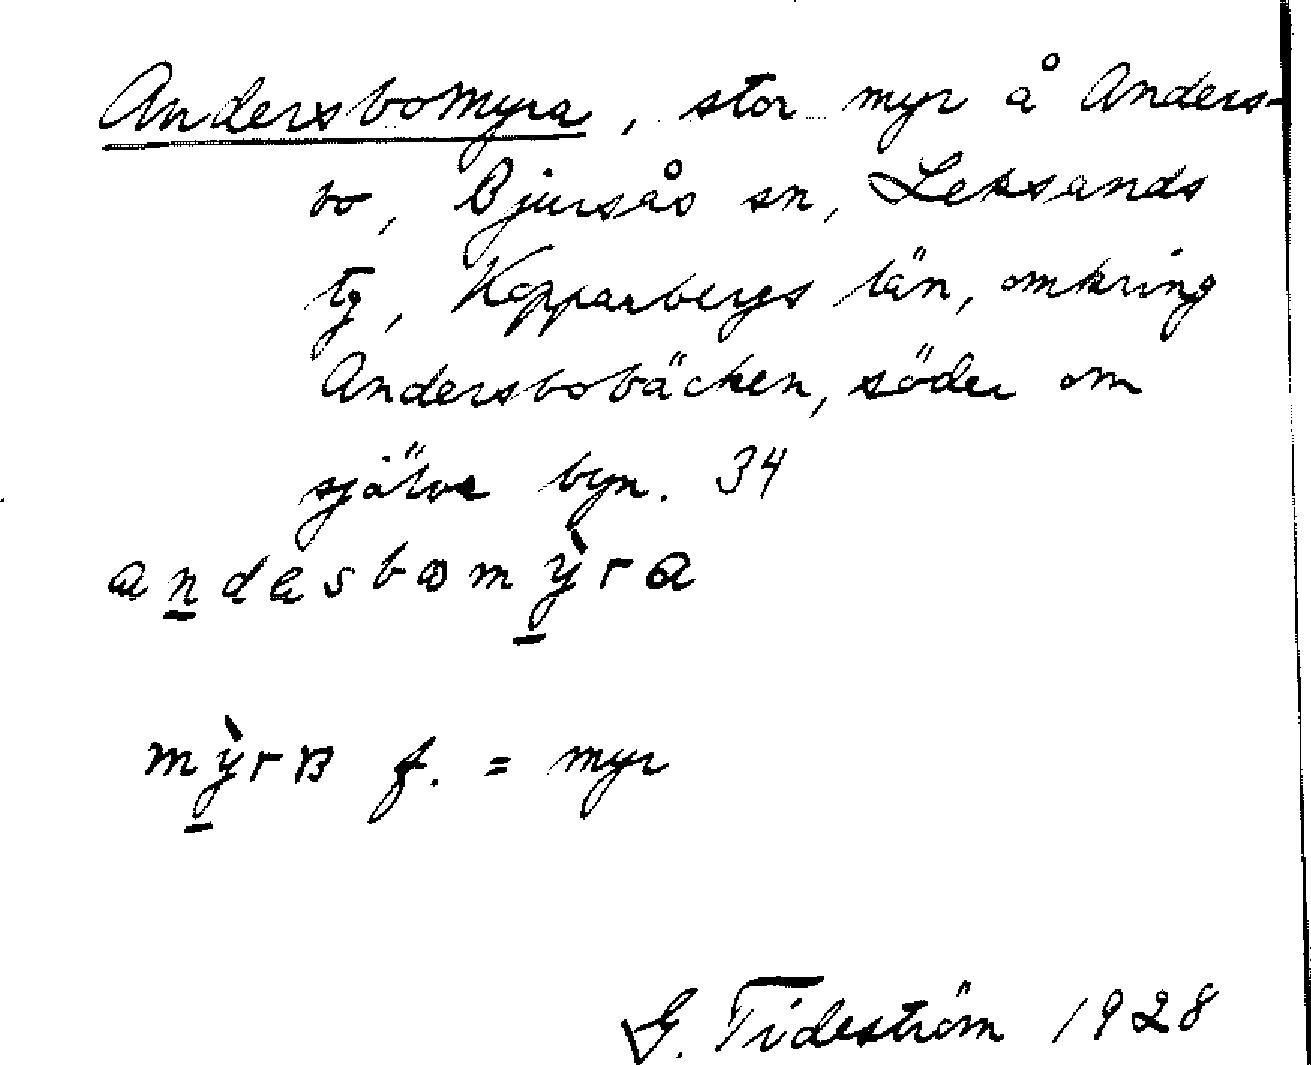 Andersbomyra, stor myr å Anders-
bo, Bjursås sn, Leksands
tg, Kopparbergs län, omkring
Andersbobäcken, söder om
själva byn. 34
andasbωmỳ̱ra
mỳ̱rʙ f. = myr
G. Tideström 1928